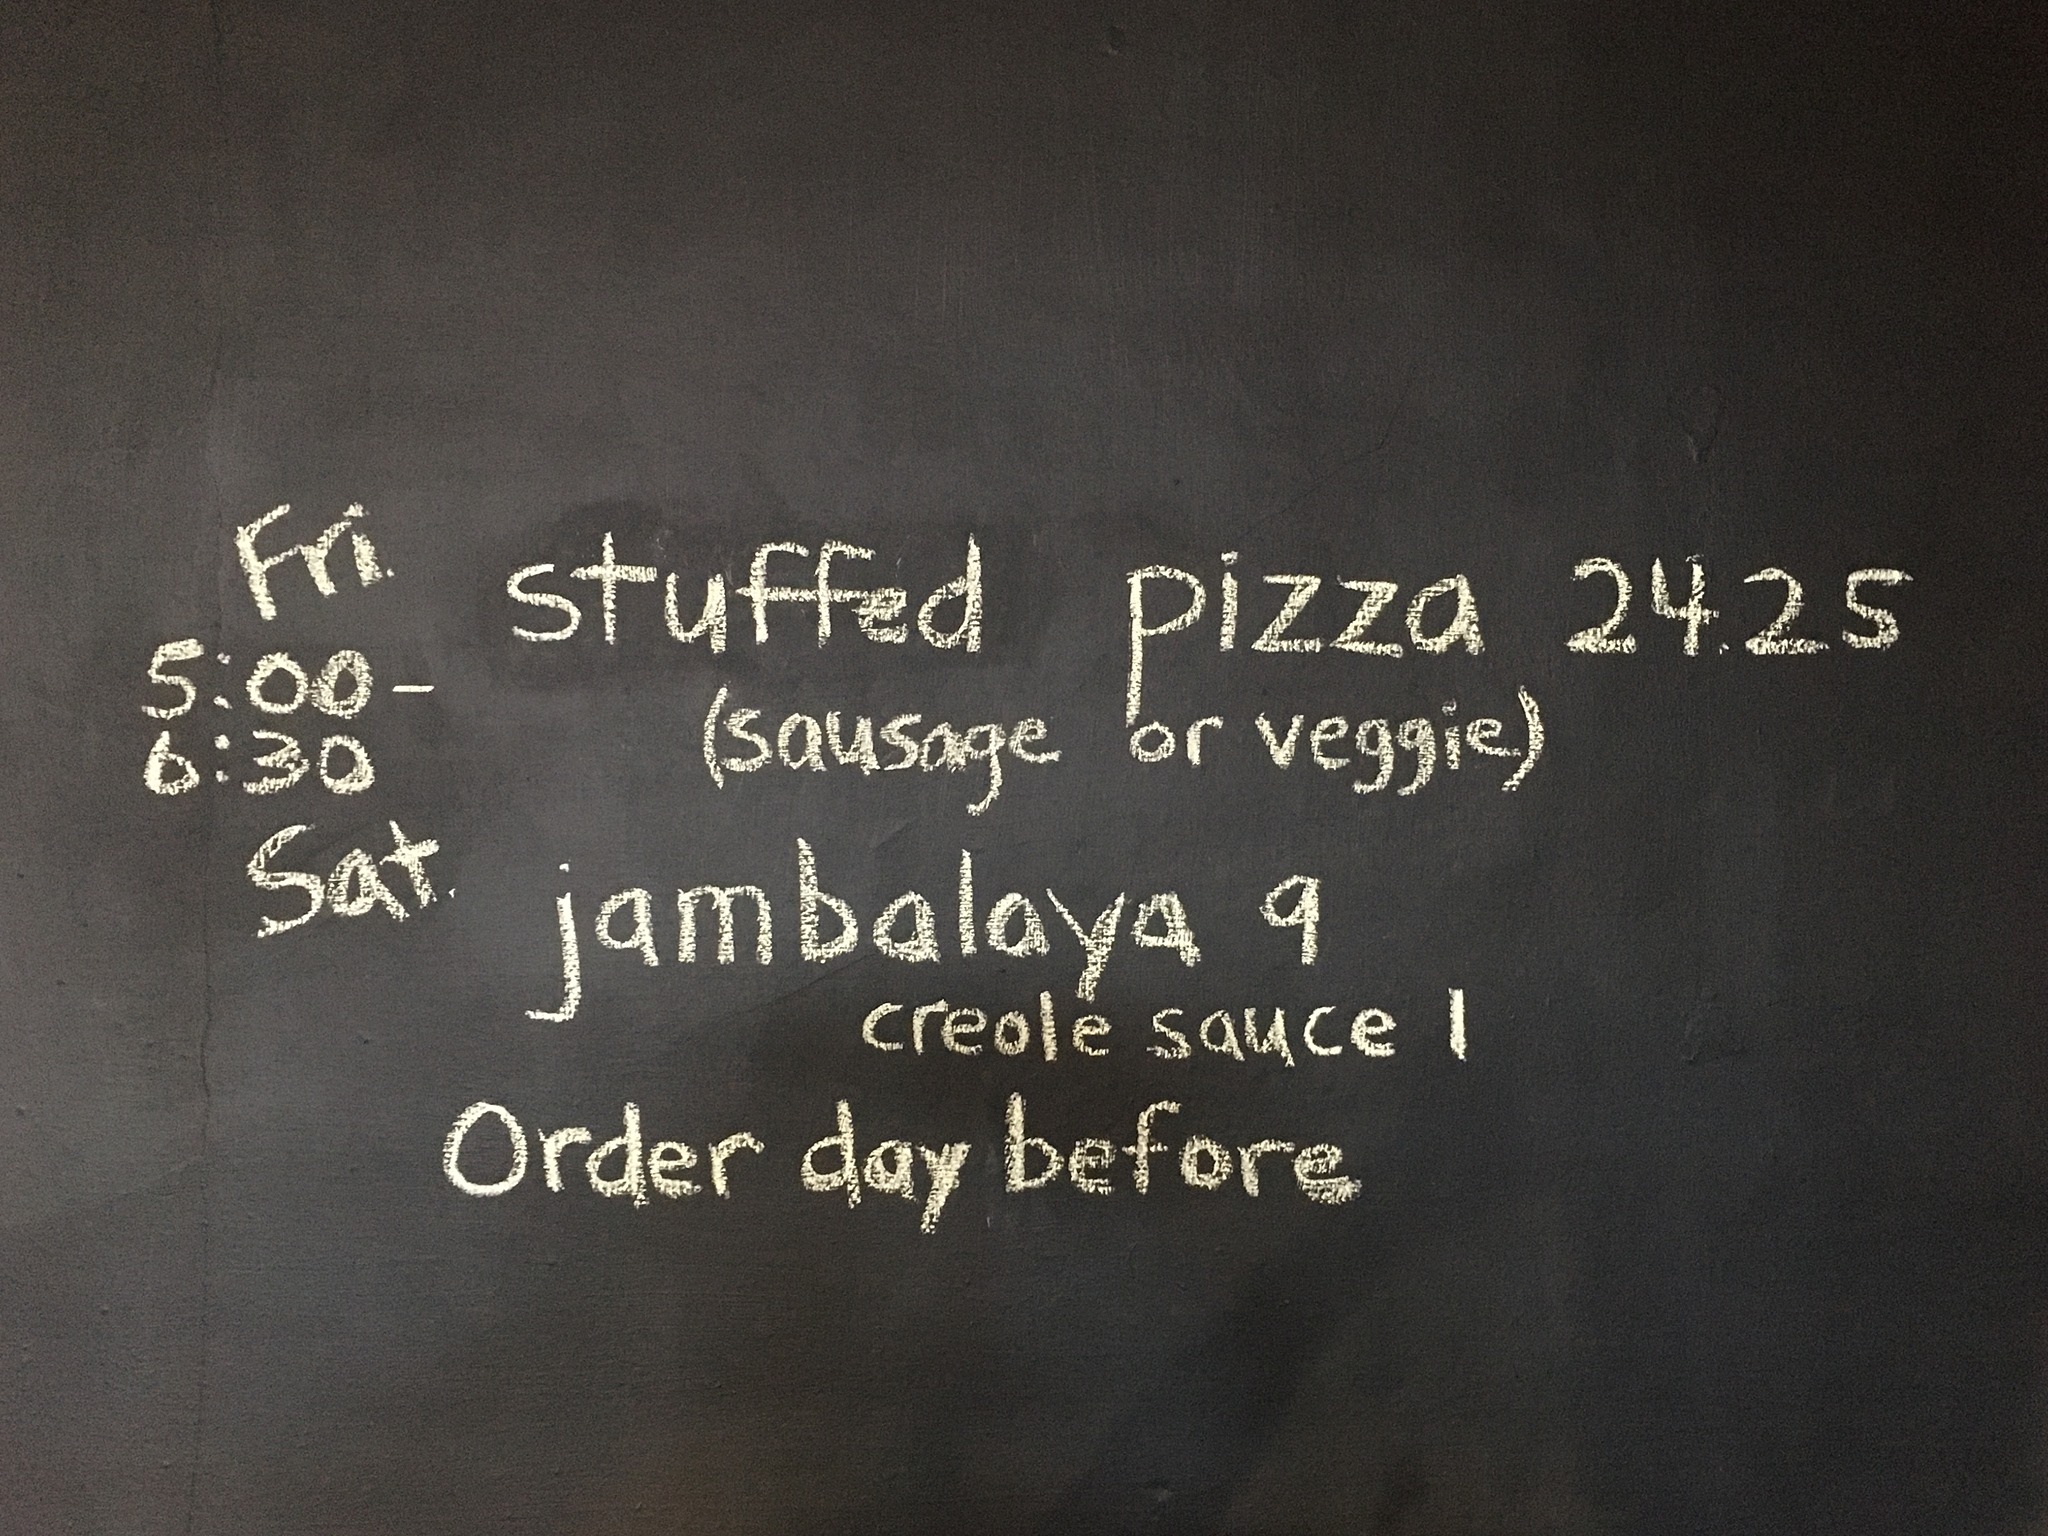 Fri.
stuffed pizza 24.25
5:00-
6:30
(sausage or veggie)
Sat.
jambalaya 9
creole sauce 1
Order day before